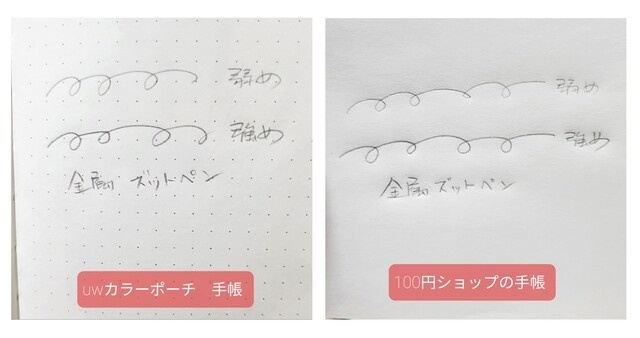 弱め
強め
金属ズットペン
uwカラーポーチ　手帳
弱め
強め
金属ズットペン
100円ショップの手帳